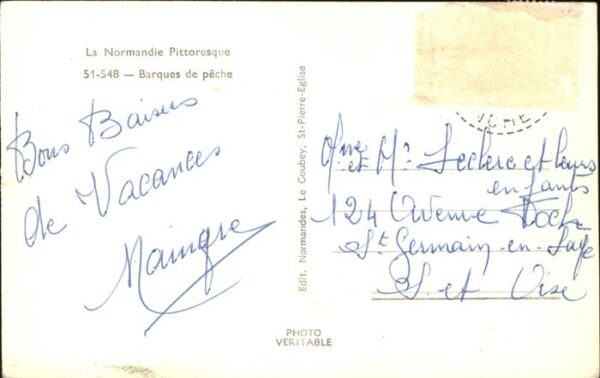 La Normandie Pittoresque
51-548 — Barques de pêche
Bons Baisers
de Vacances
Edit. Normandes, Le Goubey, St-Pierre-Eglise
PHOTO
VERITABLE
Mme et Mr Leclerc et leurs
enfants
124 Avenue Foch
St Germain-en-Laye
S et Oise